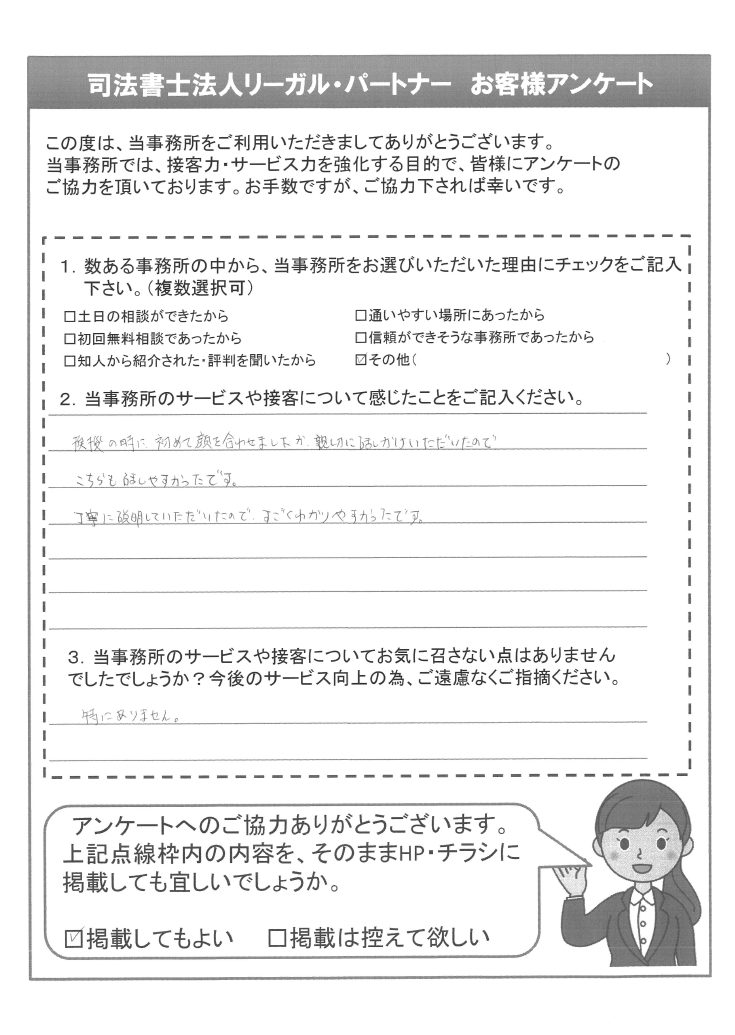 司法書士法人リーガル・パートナー　お客様アンケート
この度は、当事務所をご利用いただきましてありがとうございます。
当事務所では、接客力・サービス力を強化する目的で、皆様にアンケートの
ご協力を頂いております。お手数ですが、ご協力下されば幸いです。
1．数ある事務所の中から、当事務所をお選びいただいた理由にチェックをご記入
下さい。（複数選択可）
□土日の相談ができたから　□通いやすい場所にあったから
□初回無料相談であったから　□信頼ができそうな事務所であったから
□知人から紹介された・評判を聞いたから　☑その他(　)
2．当事務所のサービスや接客について感じたことをご記入ください。
の時に、初めて顔を合わせましたが、親切に話しかけいただいたので
こちらも話しやすかったです。
丁寧に説明していただいたので、すごくわかりやすかったです。
3．当事務所のサービスや接客についてお気に召さない点はありません
でしたでしょうか？今後のサービス向上の為、ご遠慮なくご指摘ください。
特にありません。
アンケートへのご協力ありがとうございます。
上記点線枠内の内容を、そのままHP・チラシに
掲載しても宜しいでしょうか。
☑掲載してもよい　□掲載は控えて欲しい